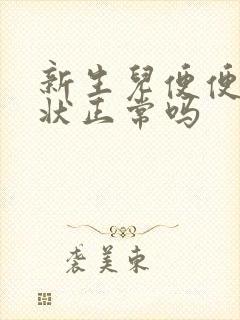 新生儿便便
状正常吗
袭美东